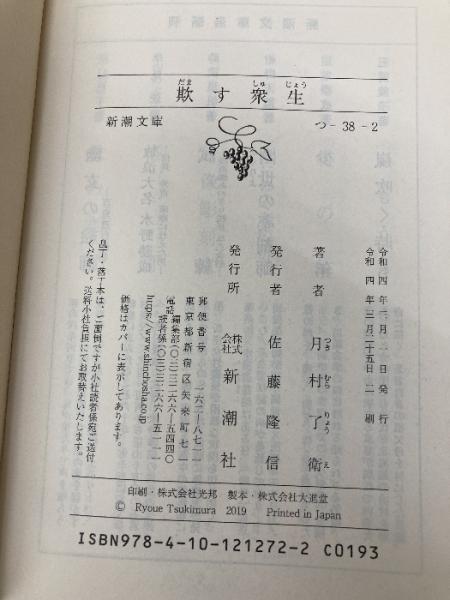 欺す衆生
だま しゅ じょう
新潮文庫
つ-38-2
令和四年三月一日発行
令和四年三月二十五日二刷
著者 月村了衛
つき むら りょう え
発行者 佐藤隆信
発行所 株式会社 新潮社
郵便番号 一六二―八七一一
東京都新宿区矢来町七一
電話 編集部(〇三)三二六六―五四四〇
読者係(〇三)三二六六―五一一一
https://www.shinchosha.co.jp
価格はカバーに表示してあります。
乱丁・落丁本は、ご面倒ですが小社読者係宛ご送付
ください。送料小社負担にてお取替えいたします。
印刷・株式会社光邦 製本・株式会社大進堂
© Ryoue Tsukimura 2019 Printed in Japan
ISBN978-4-10-121272-2 C0193